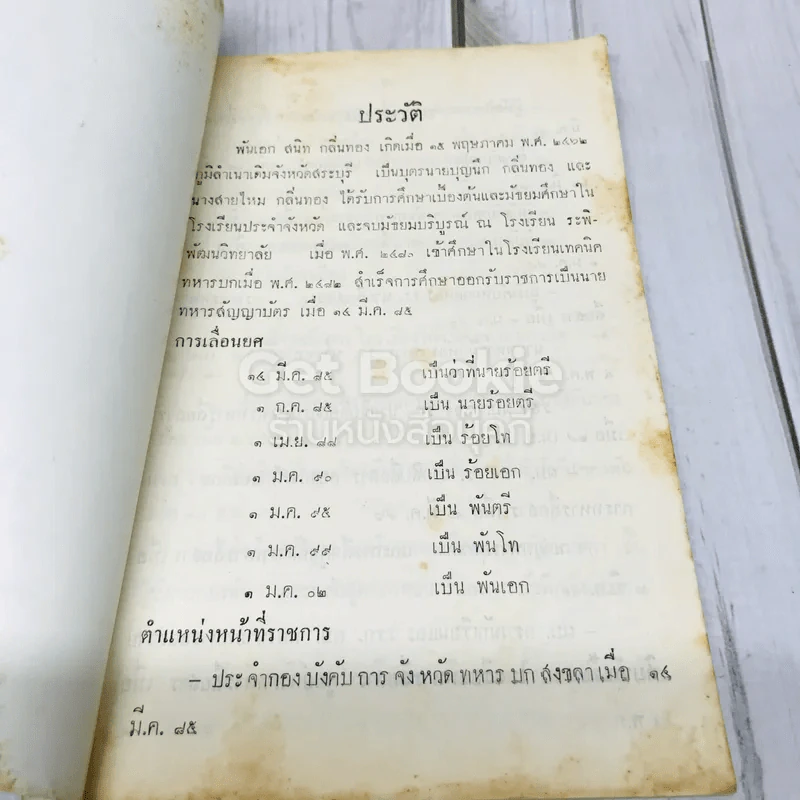 ประวัติ
พันเอก สนิท กลิ่นทอง เกิดเมื่อ ๑๕ พฤษภาคม พ.ศ. ๒๔๖๒
ภูมิลำเนาเดิมจังหวัดสระบุรี เป็นบุตรนายบุญนึก กลิ่นทอง และ
นางสายไหม กลิ่นทอง ได้รับการศึกษาเบื้องต้นและมัธยมศึกษาใน
โรงเรียนประจำจังหวัด และจบมัธยมบริบูรณ์ ณ โรงเรียน ระพี-
พัฒนวิทยาลัย เมื่อ พ.ศ. ๒๔๘๐ เข้าศึกษาในโรงเรียนเทคนิค
ทหารบกเมื่อ พ.ศ. ๒๔๘๒ สำเร็จการศึกษาออกรับราชการเป็นนาย
ทหารสัญญาบัตร เมื่อ ๑๔ มี.ค. ๘๕
การเลื่อนยศ
๑๔ มี.ค. ๘๕ เป็นว่าที่นายร้อยตรี
Get Bookie
๑ ก.ค. ๘๕ เป็น นายร้อยตรี
ร้านหนังสือมือถูกที่
๑ เม.ย. ๘๘ เป็น ร้อยโท
๑ ม.ค. ๙๐ เป็น ร้อยเอก
๑ ม.ค. ๙๕ เป็น พันตรี
๑ ม.ค. ๙๙ เป็น พันโท
๑ ม.ค. ๐๒ เป็น พันเอก
ตำแหน่งหน้าที่ราชการ
– ประจำกองบังคับการจังหวัดทหารบกสงขลาเมื่อ ๑๔
มี.ค. ๘๕